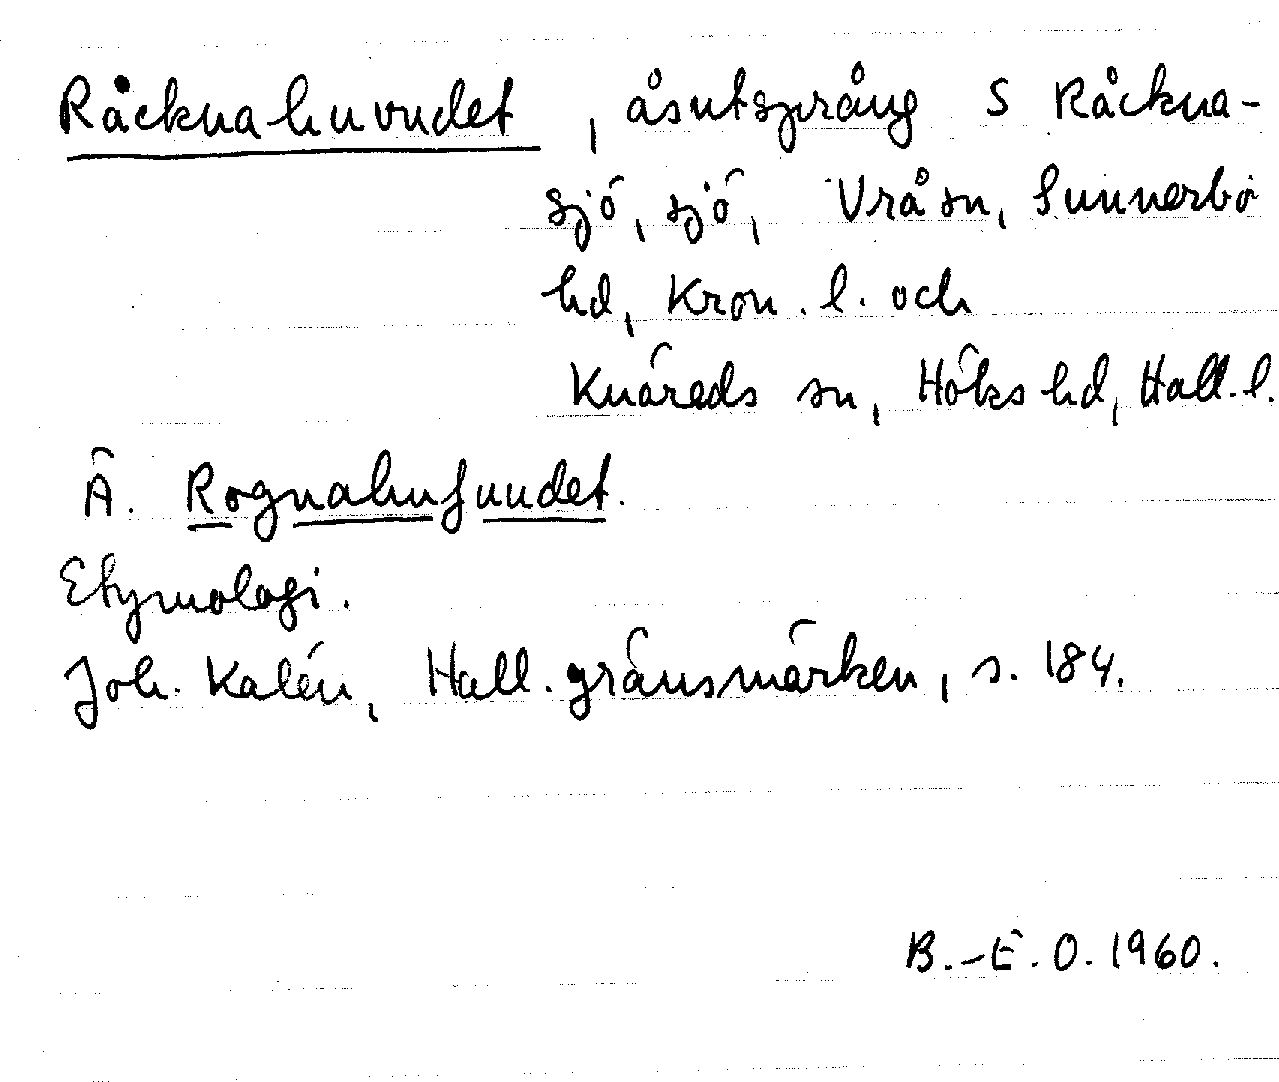 Råcknahuvudet, åsutsprång S Råckna-
sjö, sjö, Vrå sn, Sunnerbo
hd, Kron. l. och
Knäreds sn, Höks hd, Hall. l.
Ä. Rognahufuudet.
Etymologi.
Joh. Kalén, Hall. gränsmärken, s. 184.
B.-E. O. 1960.